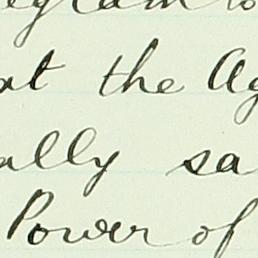 egram to
at the Ag
ally sa
Power of